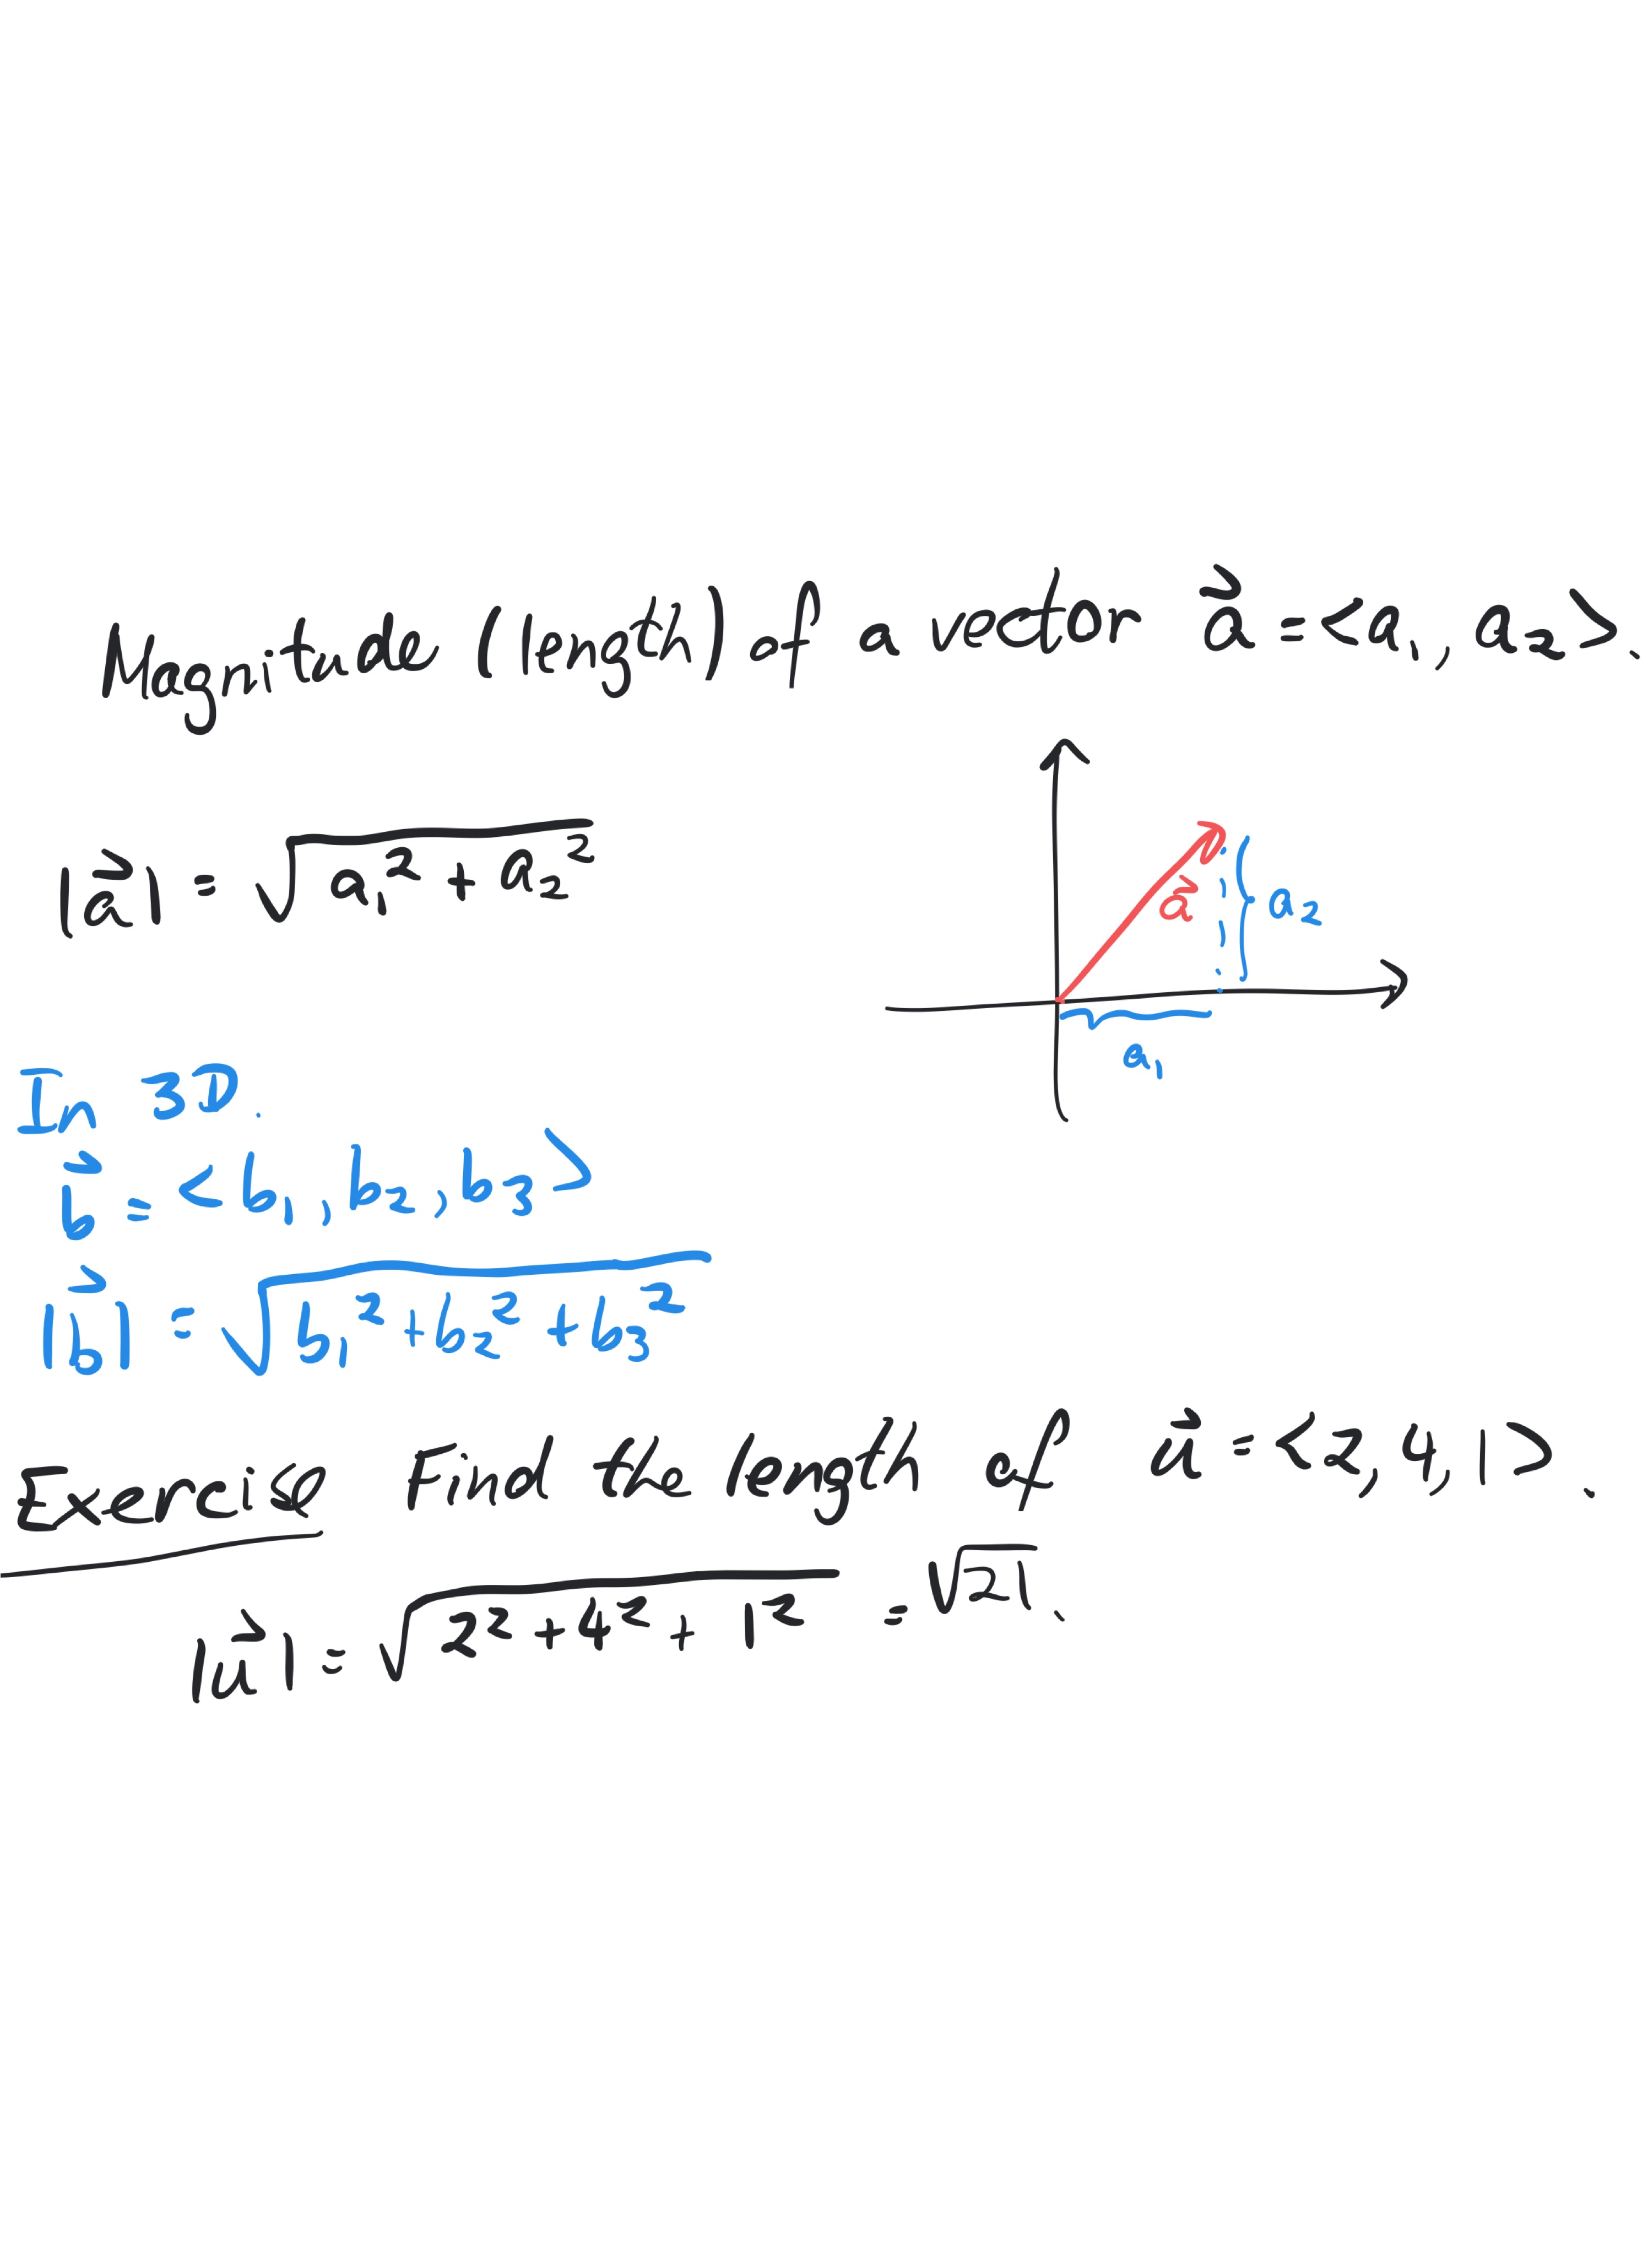 Magnitude (length) of a vector a⃗ = <a₁, a₂>.
|a⃗| = √(a₁² + a₂²)
a⃗
a₂
a₁
In 3D.
b⃗ = <b₁, b₂, b₃>
|b⃗| = √(b₁² + b₂² + b₃²)
Exercise Find the length of u⃗ = <2, 4, 1>.
|u⃗| = √(2² + 4² + 1²) = √21.